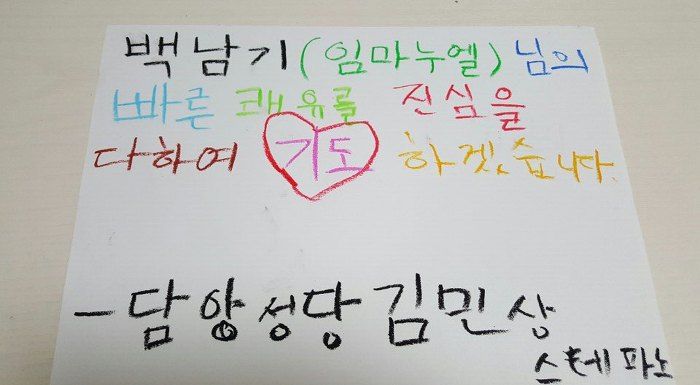 백남기(임마누엘)님의
빠른 쾌유를 진심을
다하여 기도 하겠습니다.
-담양성당 김민상
스테파노